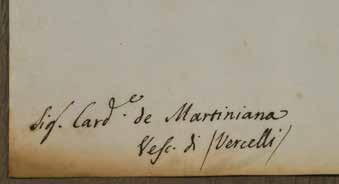 Sig. Card.e de Martiniana
Vesc. di /Vercelli/